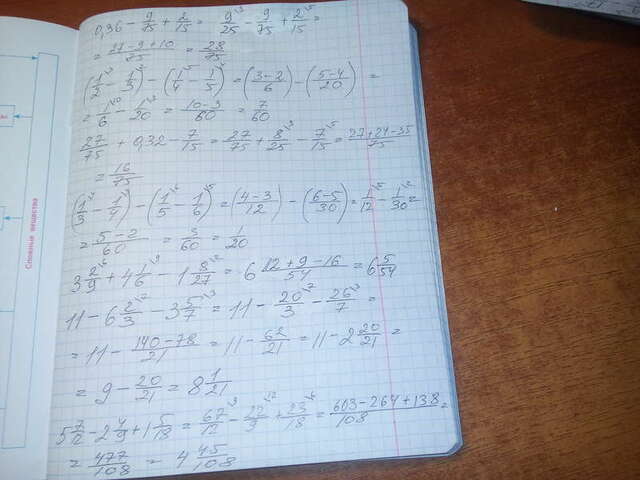 0,36 - 9/75 + 2/15 = 9/25 - 9/75 + 2/15 =
= (27-9+10)/75 = 28/75
(1/2 - 1/3) - (1/4 - 1/5) = (3-2/6) - (5-4/20) =
= 1/6 - 1/20 = (10-3)/60 = 7/60
27/75 + 0,32 - 7/15 = 27/75 + 8/25 - 7/15 = (27+24-35)/75
= 16/75
(1/3 - 1/4) - (1/5 - 1/6) = (4-3/12) - (6-5/30) = 1/12 - 1/30 =
= (5-2)/60 = 3/60 = 1/20
3 2/9 + 4 1/6 - 1 8/27 = 6 (12+9-16)/54 = 6 5/54
11 - 6 2/3 - 3 5/7 = 11 - 20/3 - 26/7 =
= 11 - (140-78)/21 = 11 - 62/21 = 11 - 2 20/21 =
= 9 - 20/21 = 8 1/21
5 7/12 - 2 4/9 + 1 5/18 = 67/12 - 22/9 + 23/18 = (603-264+138)/108 =
= 477/108 = 4 45/108
Сложные вещества